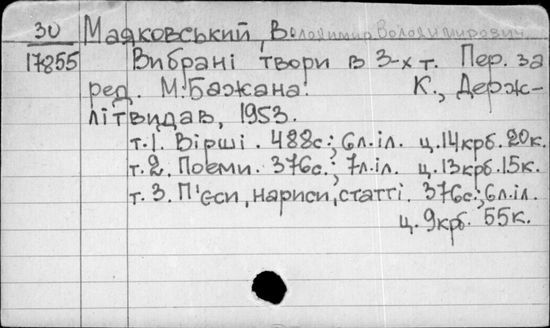 30 Маяковський, Володимир Володимирович
17855 Вибрані твори в 3-х т. Пер. за
ред. М. Бажана. К., Держ-
літвидав, 1953.
т.1. Вірші. 488с.; 6л.іл. ц.14крб.20к.
т.2. Поеми. 376с.; 7л.іл. ц.13крб.15к.
т.3. П'єси, нариси, статті. 376с.; 6л.іл.
ц.9крб.55к.